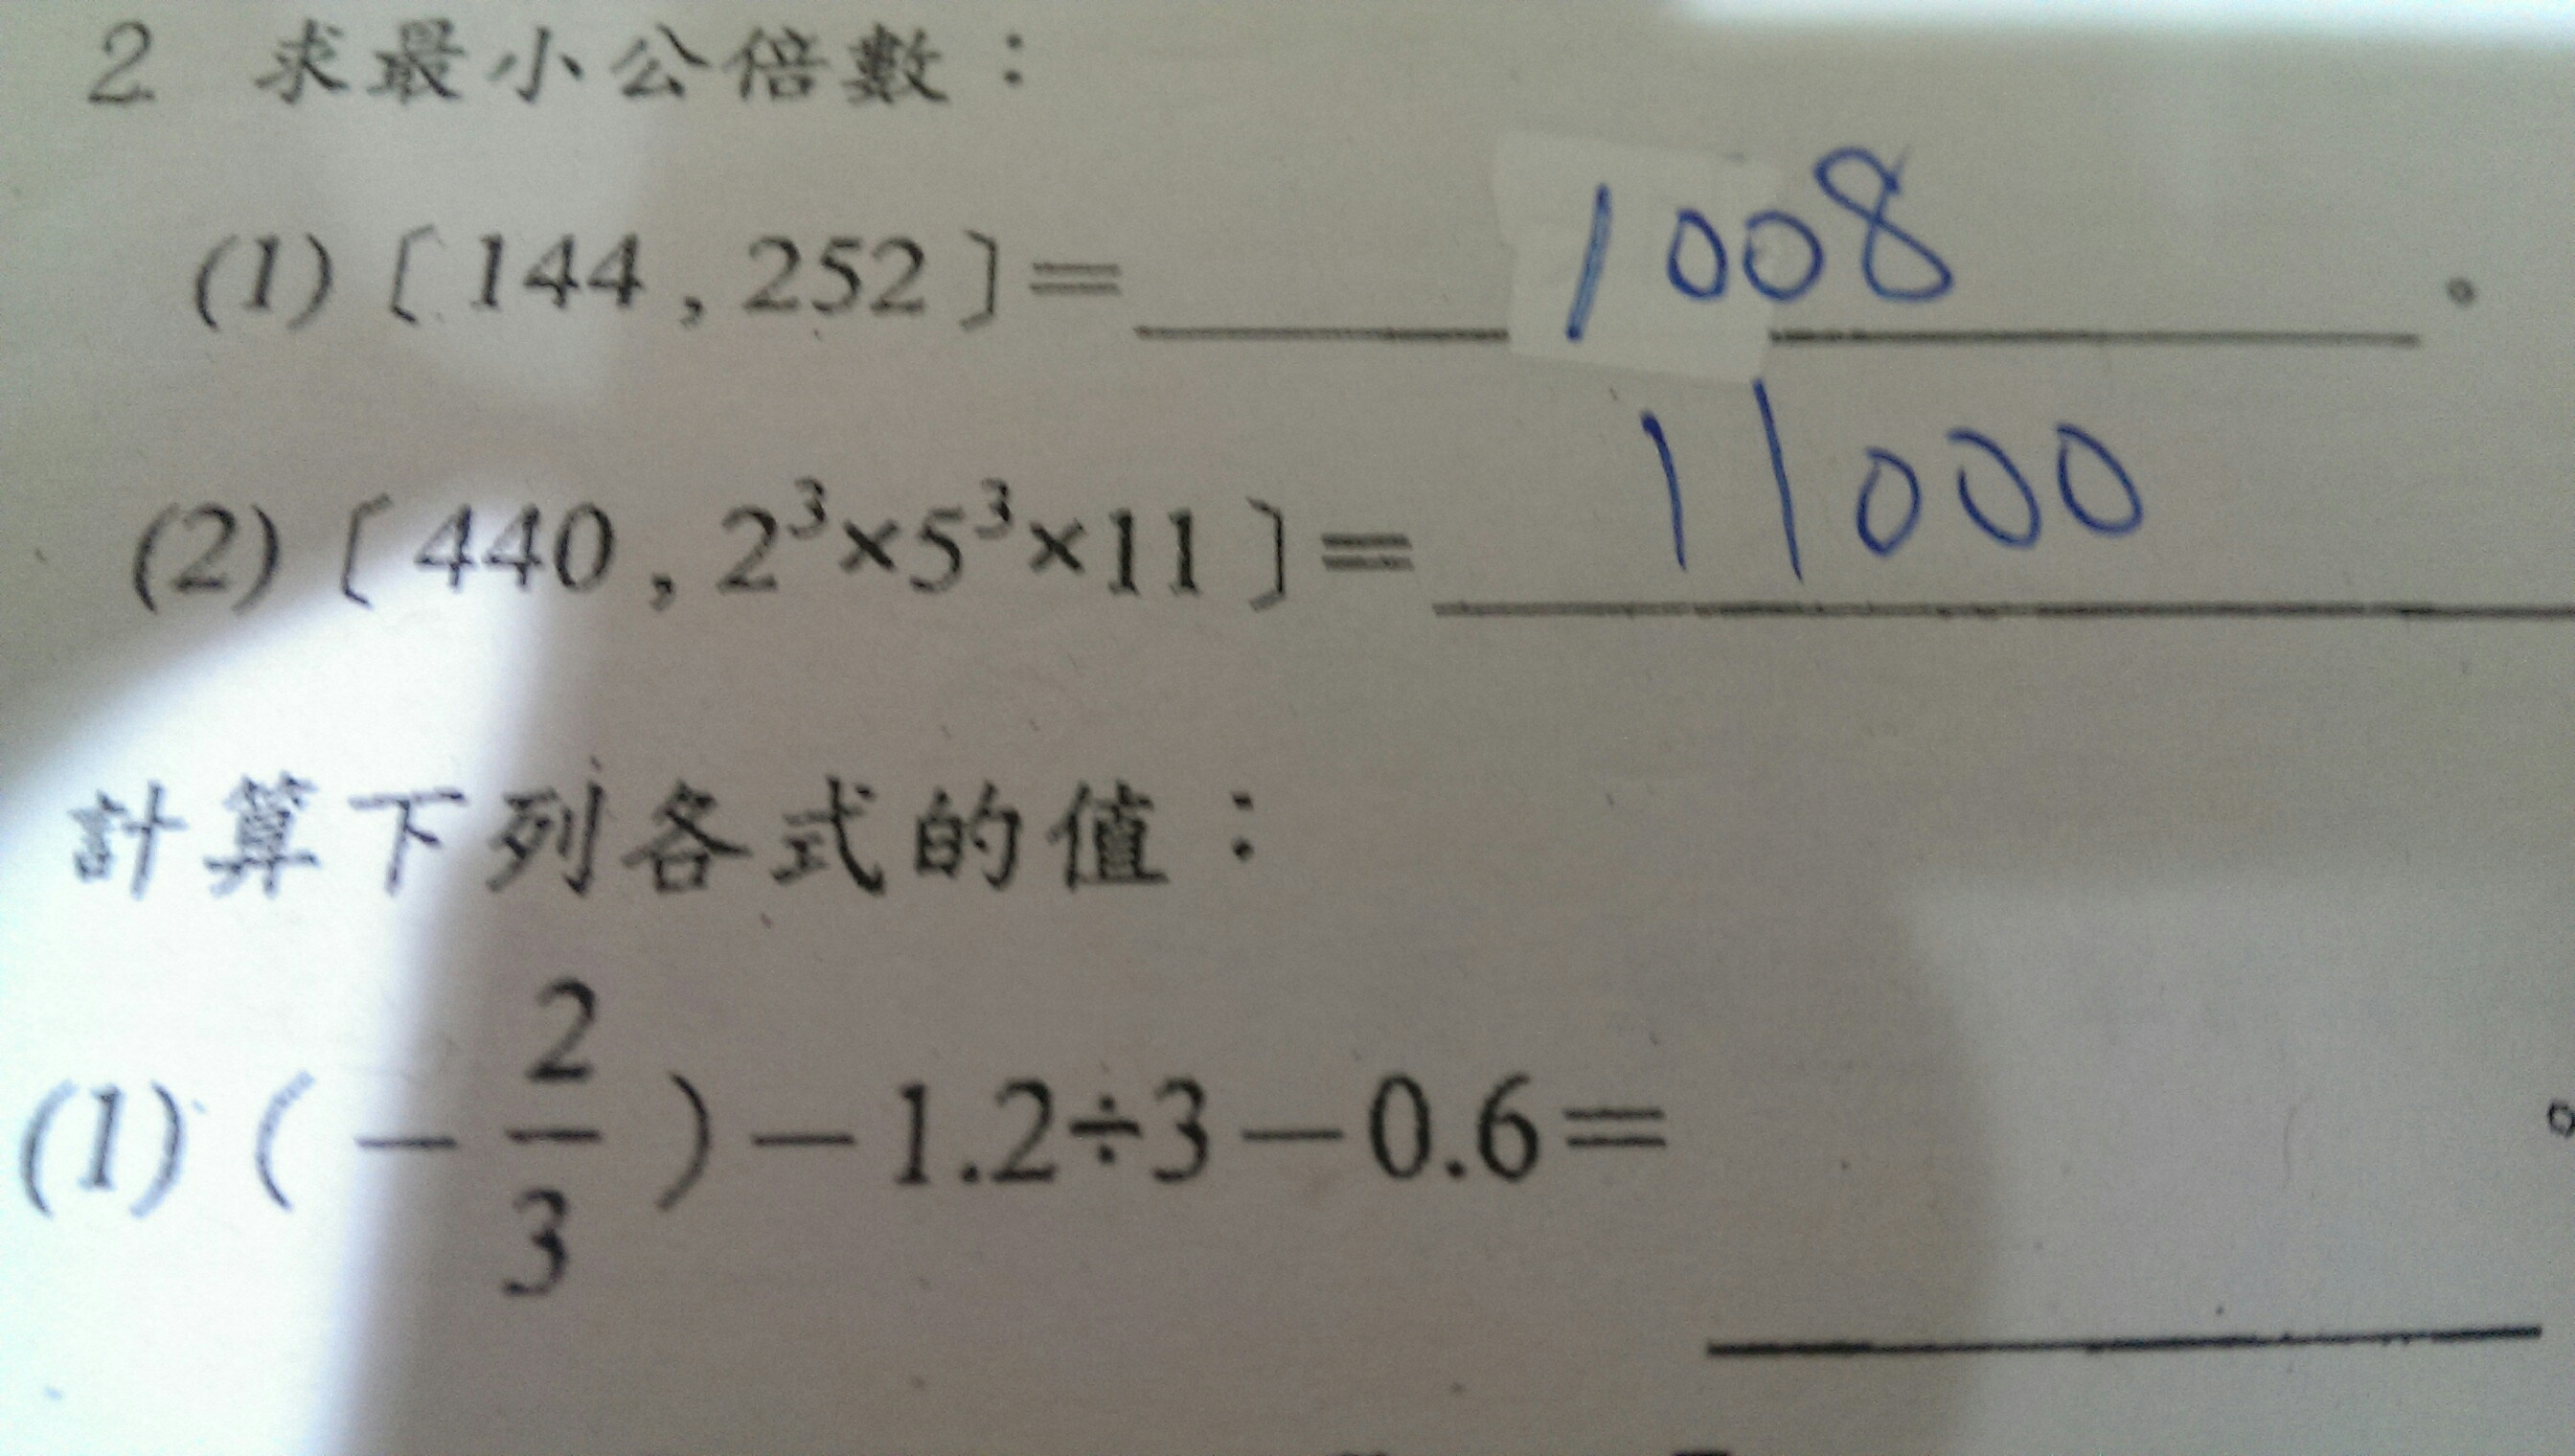 2 求最小公倍數：
(1)〔144 , 252〕= 1008 。
(2)〔440 , 2³×5³×11〕= 11000
計算下列各式的值：
(1) ( －2/3 )－1.2÷3－0.6= 。